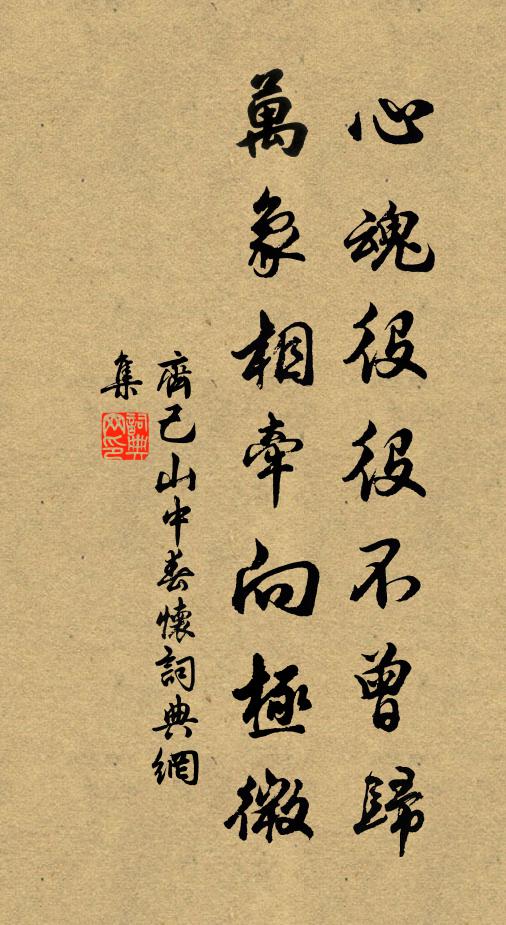 心魂役役不曾歸
萬象相牽向極微
齊己山中春懷詞典網
集
詞典網印